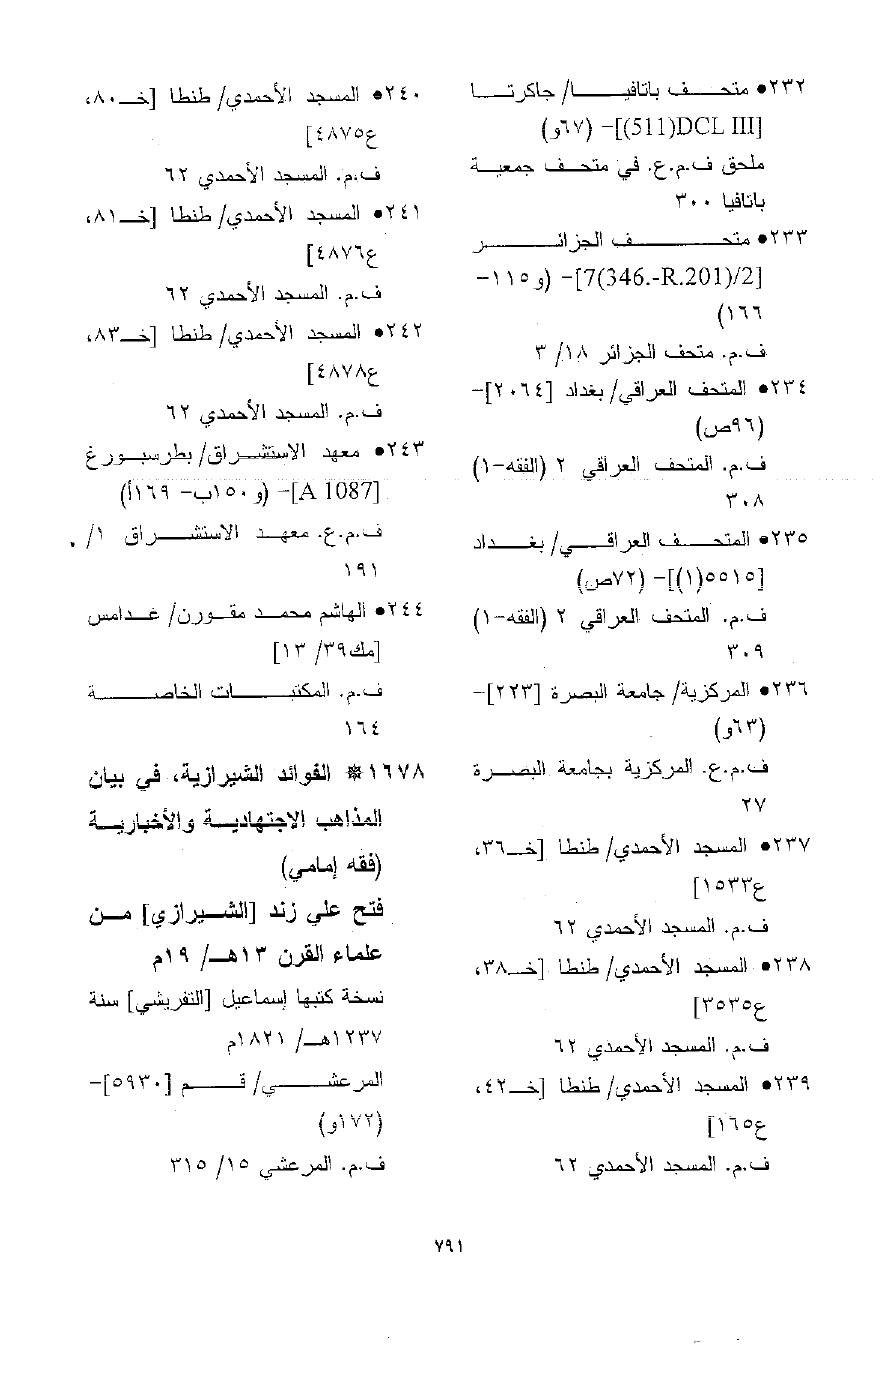 ٢٣٢• متحف باتافيا/ جاكرتا
[(511)DCL III]– (٦٧و)
ملحق ف.م.ع. في متحف جمعية
باتافيا ٣٠٠
٢٣٣• متحف الجزائر
[7(346.-R.201)/2]– (و١١٥–
١٦٦)
ف.م. متحف الجزائر ١٨/ ٣
٢٣٤• المتحف العراقي/ بغداد [٢٠٦٤]–
(٩٦ص)
ف.م. المتحف العراقي ٢ (الفقه–١)
٣٠٨
٢٣٥• المتحف العراقي/ بغداد
[٥٥١٥(١)]– (٧٢ص)
ف.م. المتحف العراقي ٢ (الفقه–١)
٣٠٩
٢٣٦• المركزية/ جامعة البصرة [٢٢٣]–
(٦٣و)
ف.م.ع. المركزية بجامعة البصرة
٢٧
٢٣٧• المسجد الأحمدي/ طنطا [خـ٣٦،
ع١٥٣٣]
ف.م. المسجد الأحمدي ٦٢
٢٣٨• المسجد الأحمدي/ طنطا [خـ٣٨،
ع٣٥٣٥]
ف.م. المسجد الأحمدي ٦٢
٢٣٩• المسجد الأحمدي/ طنطا [خـ٤٢،
ع١٦٥]
ف.م. المسجد الأحمدي ٦٢
٢٤٠• المسجد الأحمدي/ طنطا [خـ٨٠،
ع٤٨٧٥]
ف.م. المسجد الأحمدي ٦٢
٢٤١• المسجد الأحمدي/ طنطا [خـ٨١،
ع٤٨٧٦]
ف.م. المسجد الأحمدي ٦٢
٢٤٢• المسجد الأحمدي/ طنطا [خـ٨٣،
ع٤٨٧٨]
ف.م. المسجد الأحمدي ٦٢
٢٤٣• معهد الاستشراق/ بطرسبورغ
[A 1087]– (و١٥٠ب– ١٦٩أ)
ف.م.ع. معهد الاستشراق ١/
١٩١
٢٤٤• الهاشم محمد مقورن/ غدامس
[مك٣٩/ ١٣]
ف.م. المكتبات الخاصة
١٦٤
١٦٧٨* الفوائد الشيرازية، في بيان
المذاهب الاجتهادية والأخبارية
(فقه إمامي)
فتح علي زند [الشيرازي] من
علماء القرن ١٣هـ/ ١٩م
نسخة كتبها إسماعيل [التفريشي] سنة
١٢٣٧هـ/ ١٨٢١م
المرعشي/ قم [٥٩٣٠]–
(١٧٢و)
ف.م. المرعشي ١٥/ ٣١٥
٧٩١